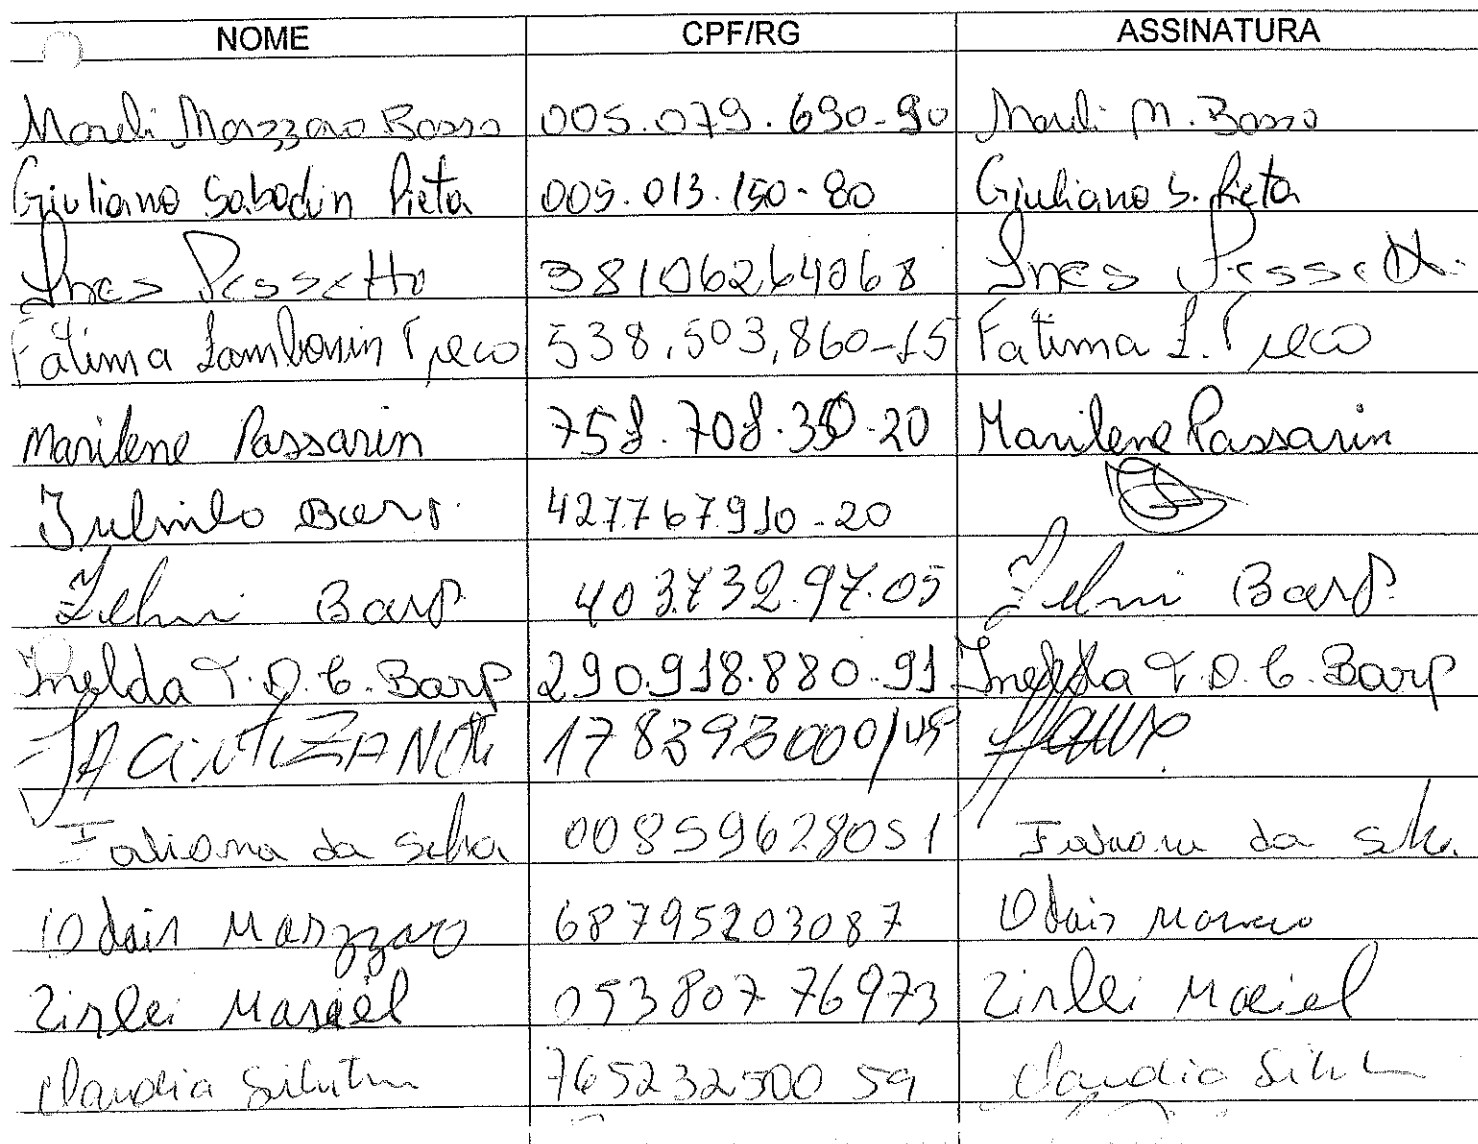 NOME CPF/RG ASSINATURA
Marli Marzzaro Bosso 005.079.690-90 Marli M. Bosso
Giuliano Sabadin Pieta 005.013.150-80 Giuliano S. Pieta
Ines Pessetto 38106264068 Ines
Fatima Lambonin 538,503,860-15 Fatima L.
Marilene Passarin 758.708.350-20 Marilene Passarin
Barp. 427767910-20
Zelmi Barp 403.732.97.05 Zelmi Barp.
Inelda T.D.C. Barp 290.918.880.91 Inelda T.D.C. Barp
178393000/49
Fabiana da Silva 00859628051 Fabiana da
Odair Marzzaro 68795203087 Odair
Zirlei Maciel 053807 76973 Zirlei Maciel
Claudia 765232500 59 Claudia